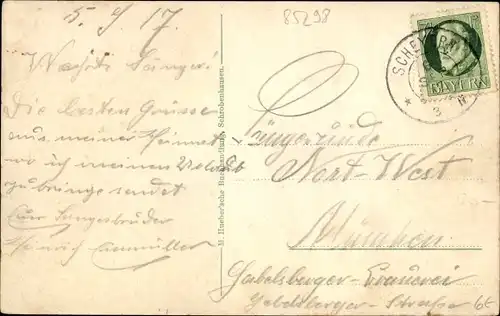 5./4 17.
85298
Werte Sänger!
Die besten Grüsse
aus meiner Heimat
wo ich meinen Urlaub
zubringe sendet
Euer Sangesbruder
Heinrich
M. Hueber'sche Buchhandlung, Schrobenhausen.
BAYERN
Sängerrunde
Nort-West
München
Gabelsberger-Brauerei
Gabelsberger-Straße